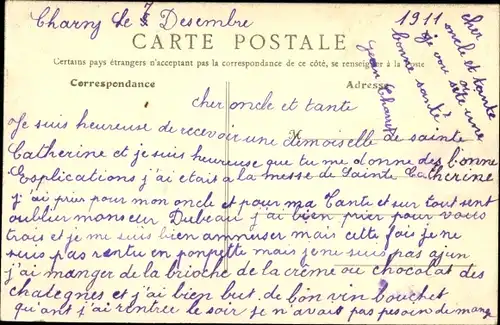 Charny le 7 Desembre
1911
CARTE POSTALE
Certains pays étrangers n'acceptant pas la correspondance de ce côté, se renseigner à la poste
Correspondance
Adresse
cher oncle et tante
je vous
bonne santé
Jean Charny
cher oncle et tante
Je suis heureuse de recevoir une demoiselle de sainte
Catherine et je suis heureuse que tu me donne des bonne
Esplications j'ai etait a la messe de Sainte Catherine
j'ai prier pour mon oncle et pour ma Tante et sur tout sent
oublier monseur Dubeau j'ai bien prier pour vous
trois et je me suis bien amuser mais cette fois je ne
suis pas rentu en pompette mais je ne suis pas ajun
j'ai manger de la brioche de la crème au chocolat des
chategnes et j'ai bien but de bon vin bouchet
quant j'ai rentree le soir je n'avait pas besoin de mang